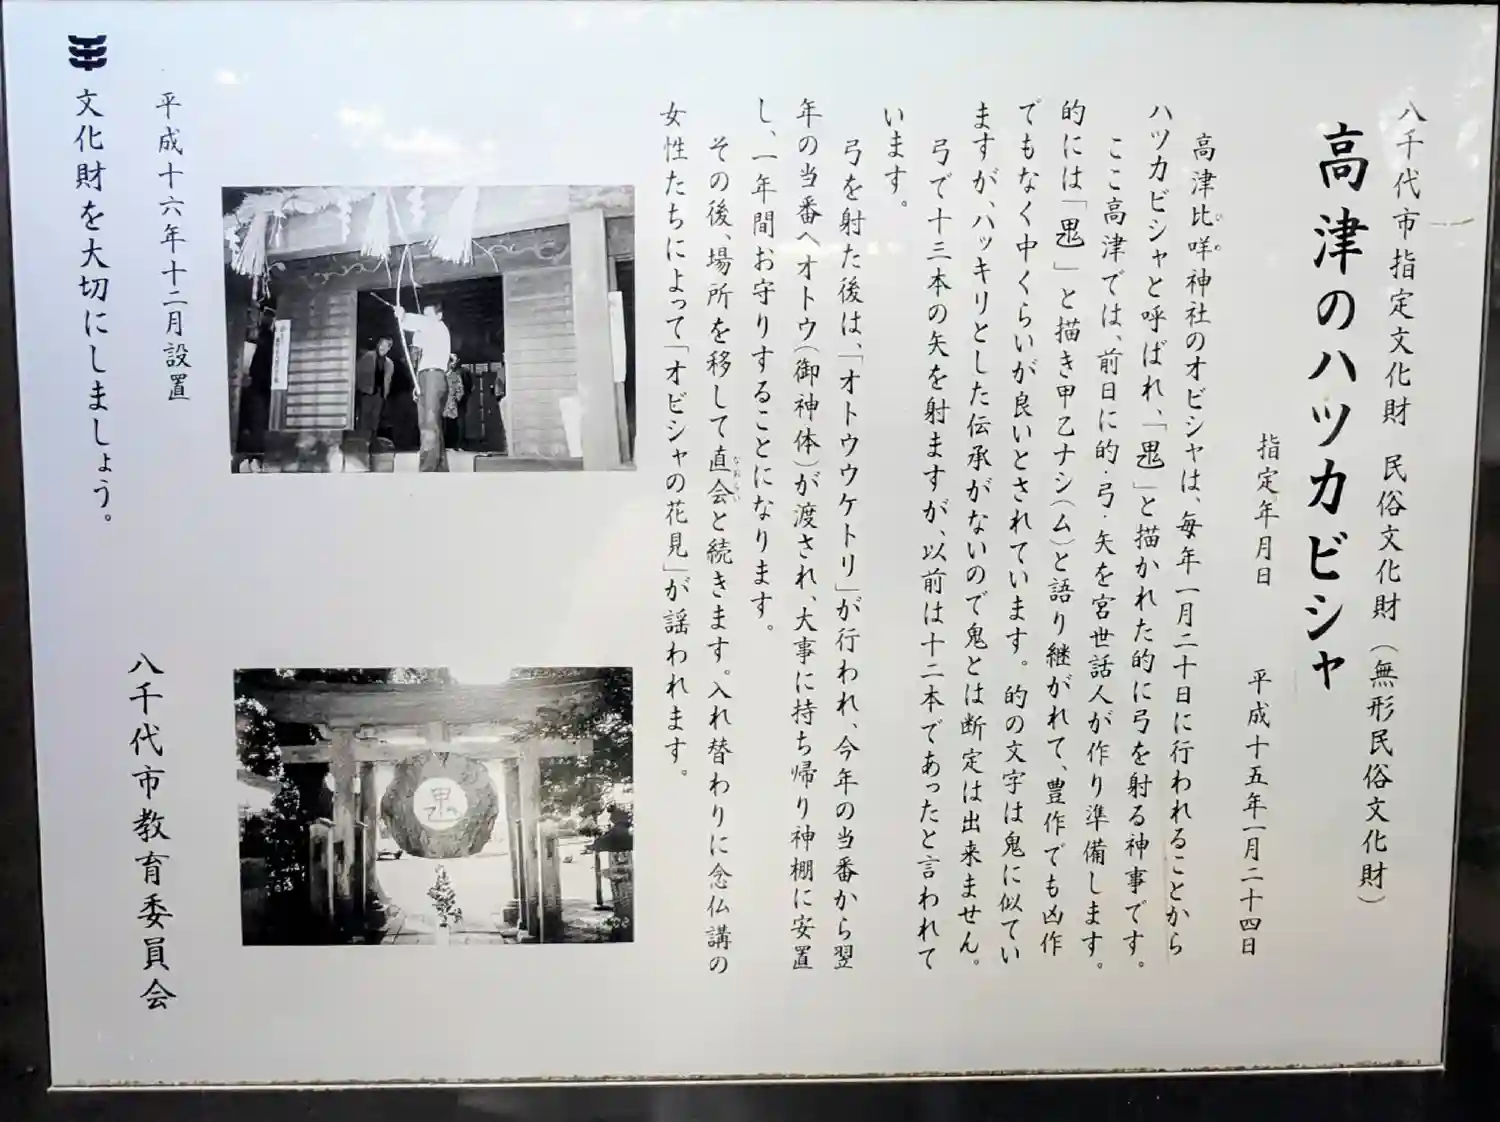 八千代市指定文化財 民俗文化財(無形民俗文化財)
高津のハツカビシャ
指定年月日 平成十五年一月二十四日
高津比咩神社のオビシャは、毎年一月二十日に行われることから
ひめ
ハツカビシャと呼ばれ、「㒵」と描かれた的に弓を射る神事です。
ここ高津では、前日に的・弓・矢を宮世話人が作り準備します。
的には「㒵」と描き甲乙ナシ(ム)と語り継がれて、豊作でも凶作
でもなく中くらいが良いとされています。的の文字は鬼に似てい
ますが、ハッキリとした伝承がないので鬼とは断定は出来ません。
弓で十三本の矢を射ますが、以前は十二本であったと言われて
います。
弓を射た後は、「オトウウケトリ」が行われ、今年の当番から翌
年の当番へオトウ(御神体)が渡され、大事に持ち帰り神棚に安置
し、一年間お守りすることになります。
その後、場所を移して直会と続きます。入れ替わりに念仏講の
なおらい
女性たちによって「オビシャの花見」が謡われます。
平成十六年十二月設置
八千代市教育委員会
文化財を大切にしましょう。